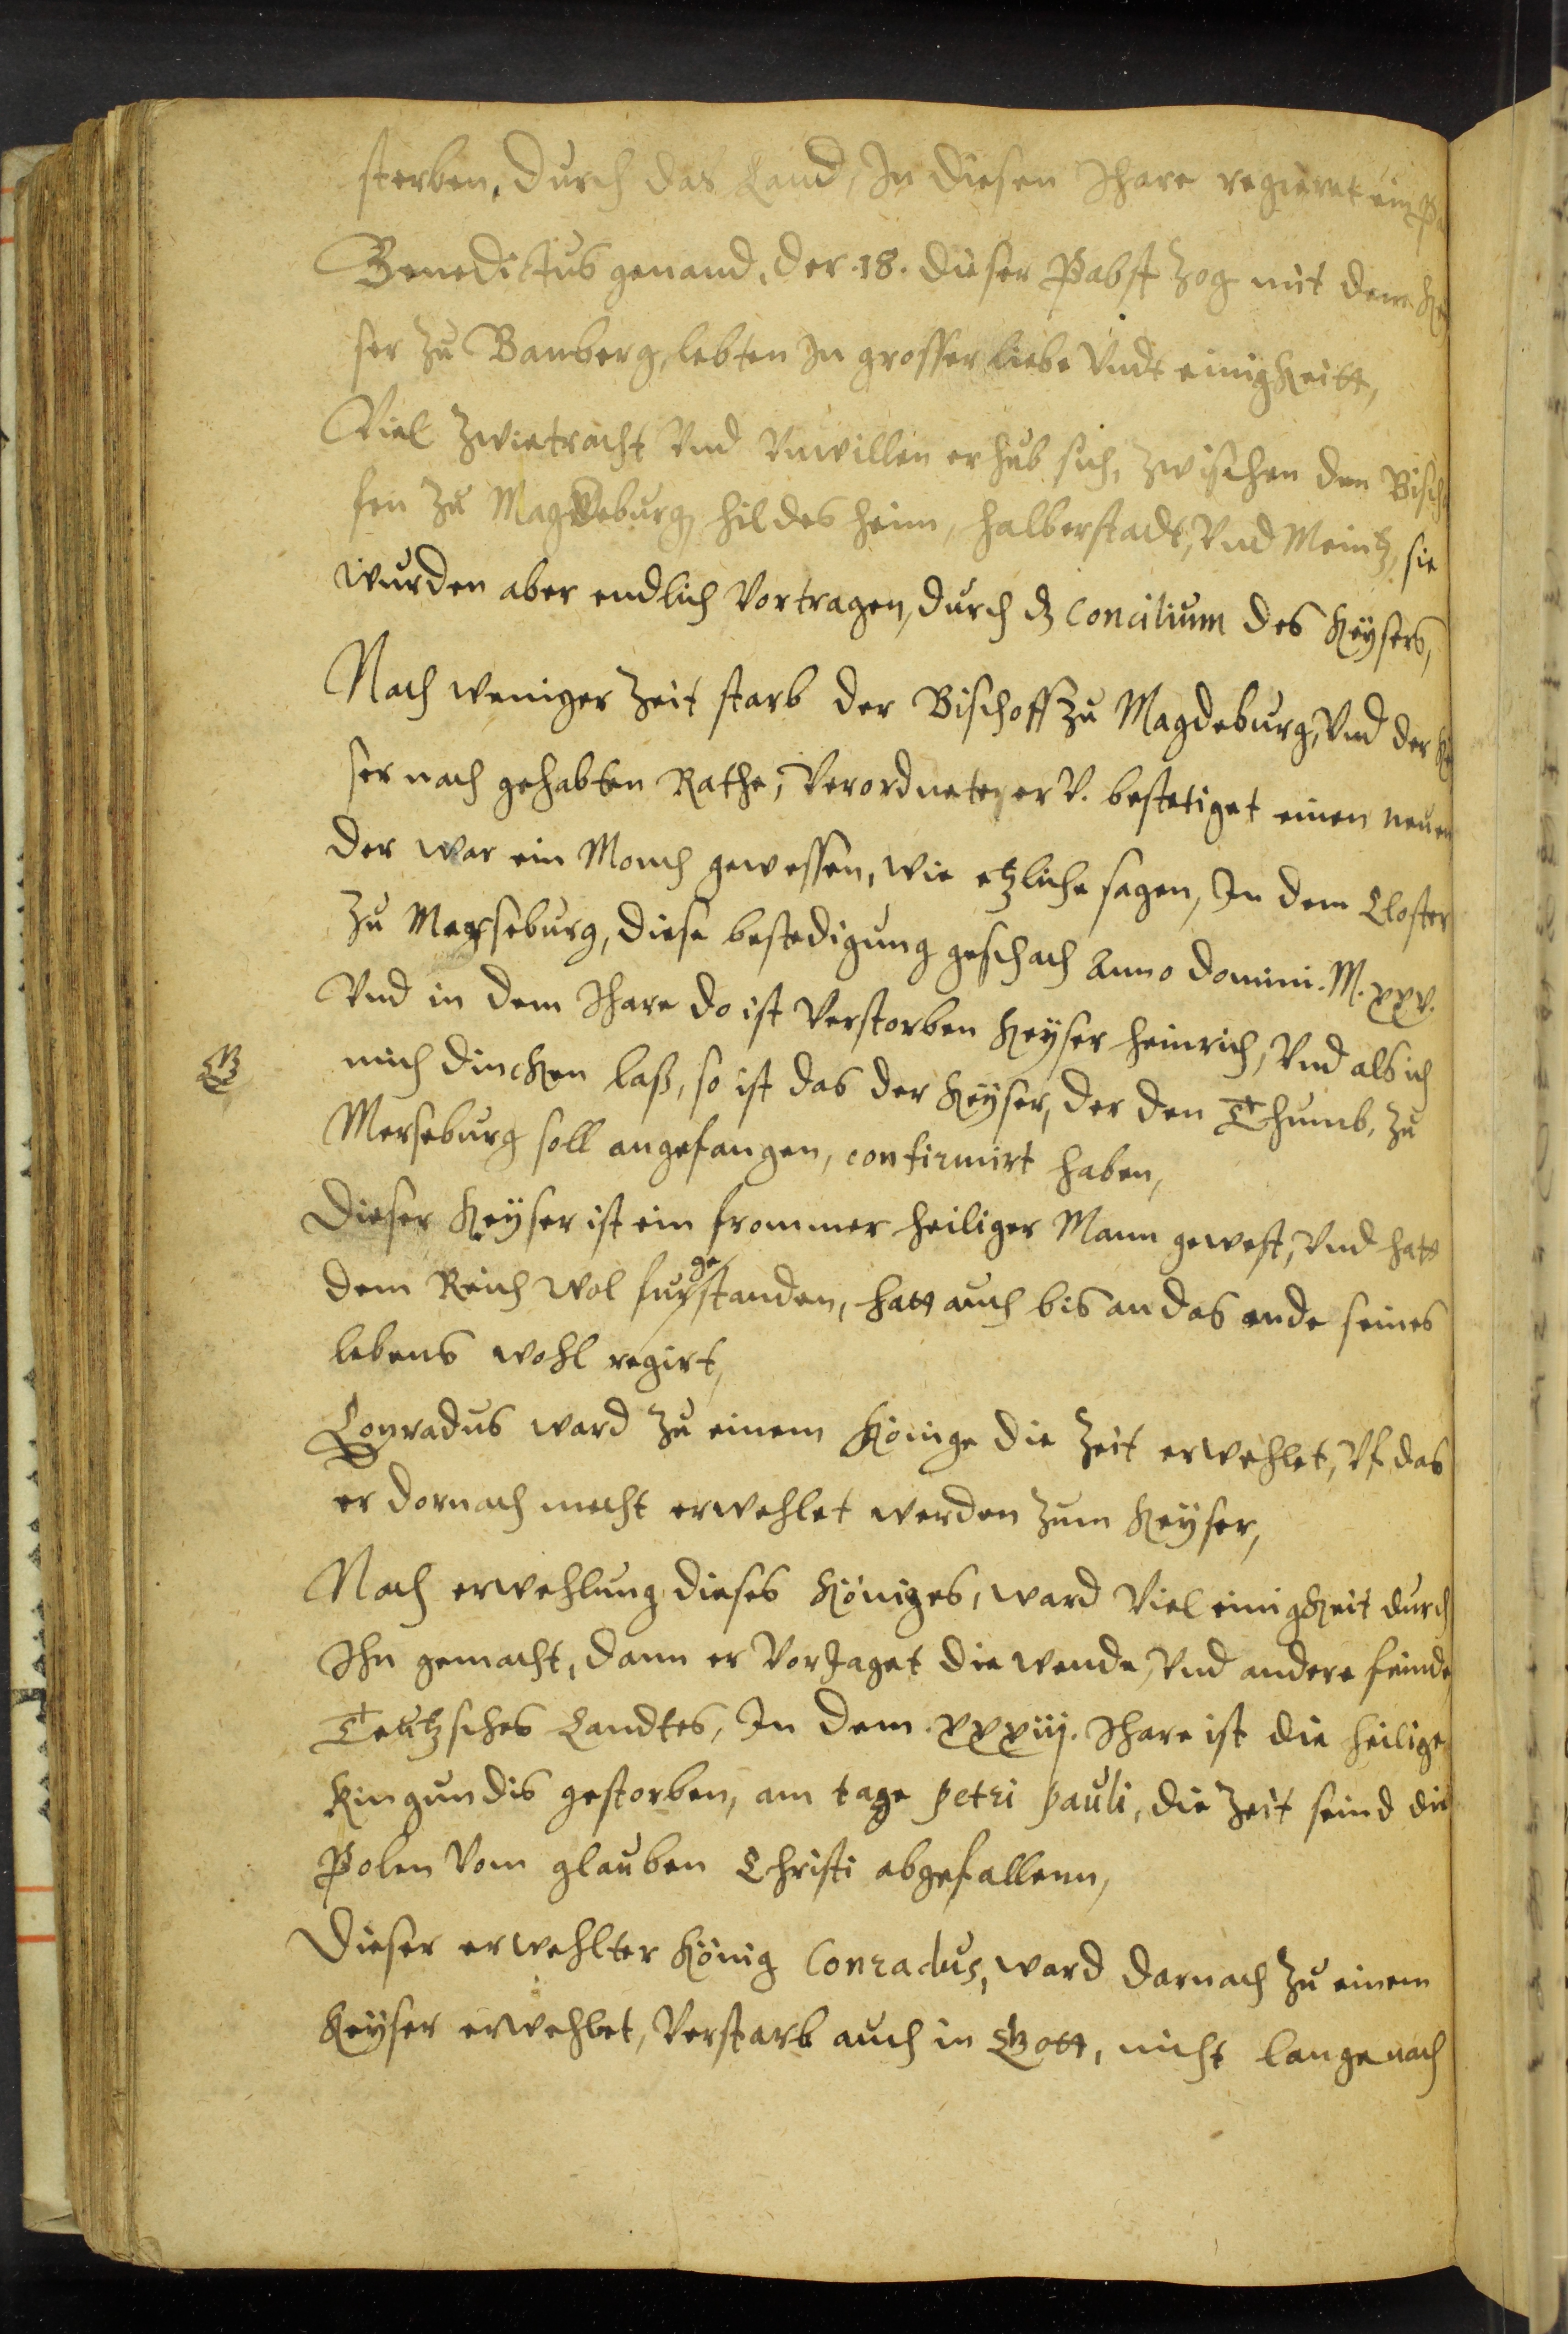 sterben, durch das Land, In diesen Ihare regieret ein
Benedictus genand, der .18. dieser Pabst zog mit dem
ser zu Bamberg, lebten In grosser liebe Vndt einigkeitt,
Viel Zwietracht Vnd Vnwillen erhub sich, zwischen den Bisch
fen zu Magdeburg, Hildesheim, Halberstadt, Vnd Meintz, sie
wurden aber endlich Vortragen, durch dz Concilium des Keysers,
Nach weniger Zeit starb der Bischoff zu Magdeburg, Vnd der
ser nach gehabten Rathe, Verordnete er V. bestetiget einen neuen
der war ein Monch gewessen, wie etzliche sagen, In dem Closter
zu Merseburg, diese bestedigung geschach Anno Domini. M. xxv.
Vnd in dem Ihare do ist Verstorben Keyser Heinrich, Vnd als ich
NB mich dincken laß, so ist das der Keyser, der den Thumb, zu
Merseburg soll angefangen, confirmirt haben,
Dieser Keyser ist ein frommer heiliger Mann gewest, Vnd hatt
ge
dem Reich wol furstanden, hatt auch bis an das ende seines
lebens wohl regirt,
Conradus ward zu einem Könige die Zeit erwehlet, Vf das
er dornach mecht erwehlet werden zum Keyser,
Nach erwehlung dieses Königes, ward Viel einigkeit durch
Ihn gemacht, dann er Vorjaget die wende, Vnd andere feinde
Teutzsches Landtes, In dem .xxxiij. Ihare ist die heilige
Kingundis gestorben, am tage Petri Pauli, die Zeit seind die
Polen Vom glauben Christi abgefallenn,
Dieser erwehlter König Conradus, ward darnach zu einem
Keyser erwehlet, Verstarb auch in Gott, nicht lange nach